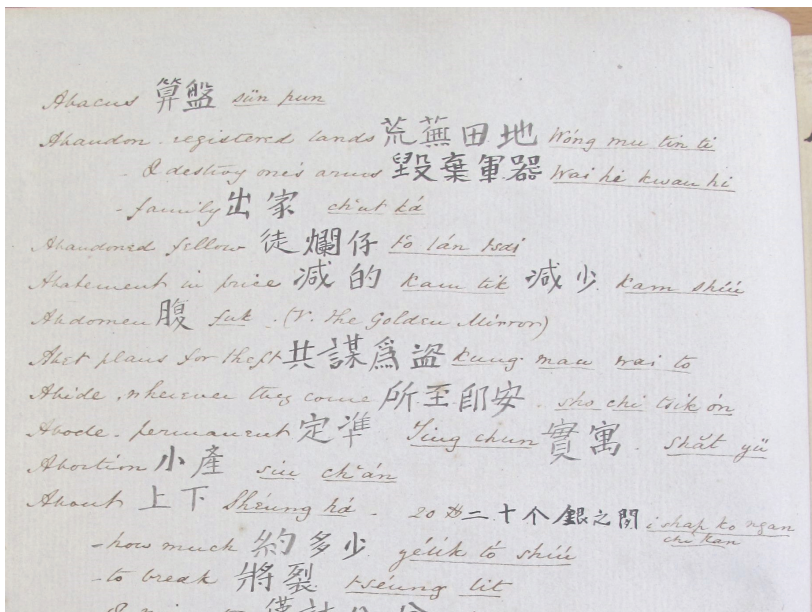 Abacus 算盤 sün pun
Abandon. registered lands 荒蕪田地 Wóng mu tin ti
- & destroy one's arms 毀棄軍器 Wai hè kwan hi
- family 出家 ch'ut ká
Abandoned fellow 徒爛仔 t'o lán tsai
Abatement in price 減的 kam tik 減少 kam shiú
Abdomen 腹 fuk. (V. the Golden Mirror)
Abet plans for theft 共謀爲盗 kung mau wai to
Abide, wherever they come 所至即安. sho chi tsik ón
Abode. permanent 定準 Ting chun 實寓. shăt yü
Abortion 小產 siu ch'án
About 上下 Shéung há. 20 二十个銀之間 i shap ko ngan
chi kan
- how much 約多少 tó shiú
- to break 將裂 tséung lit